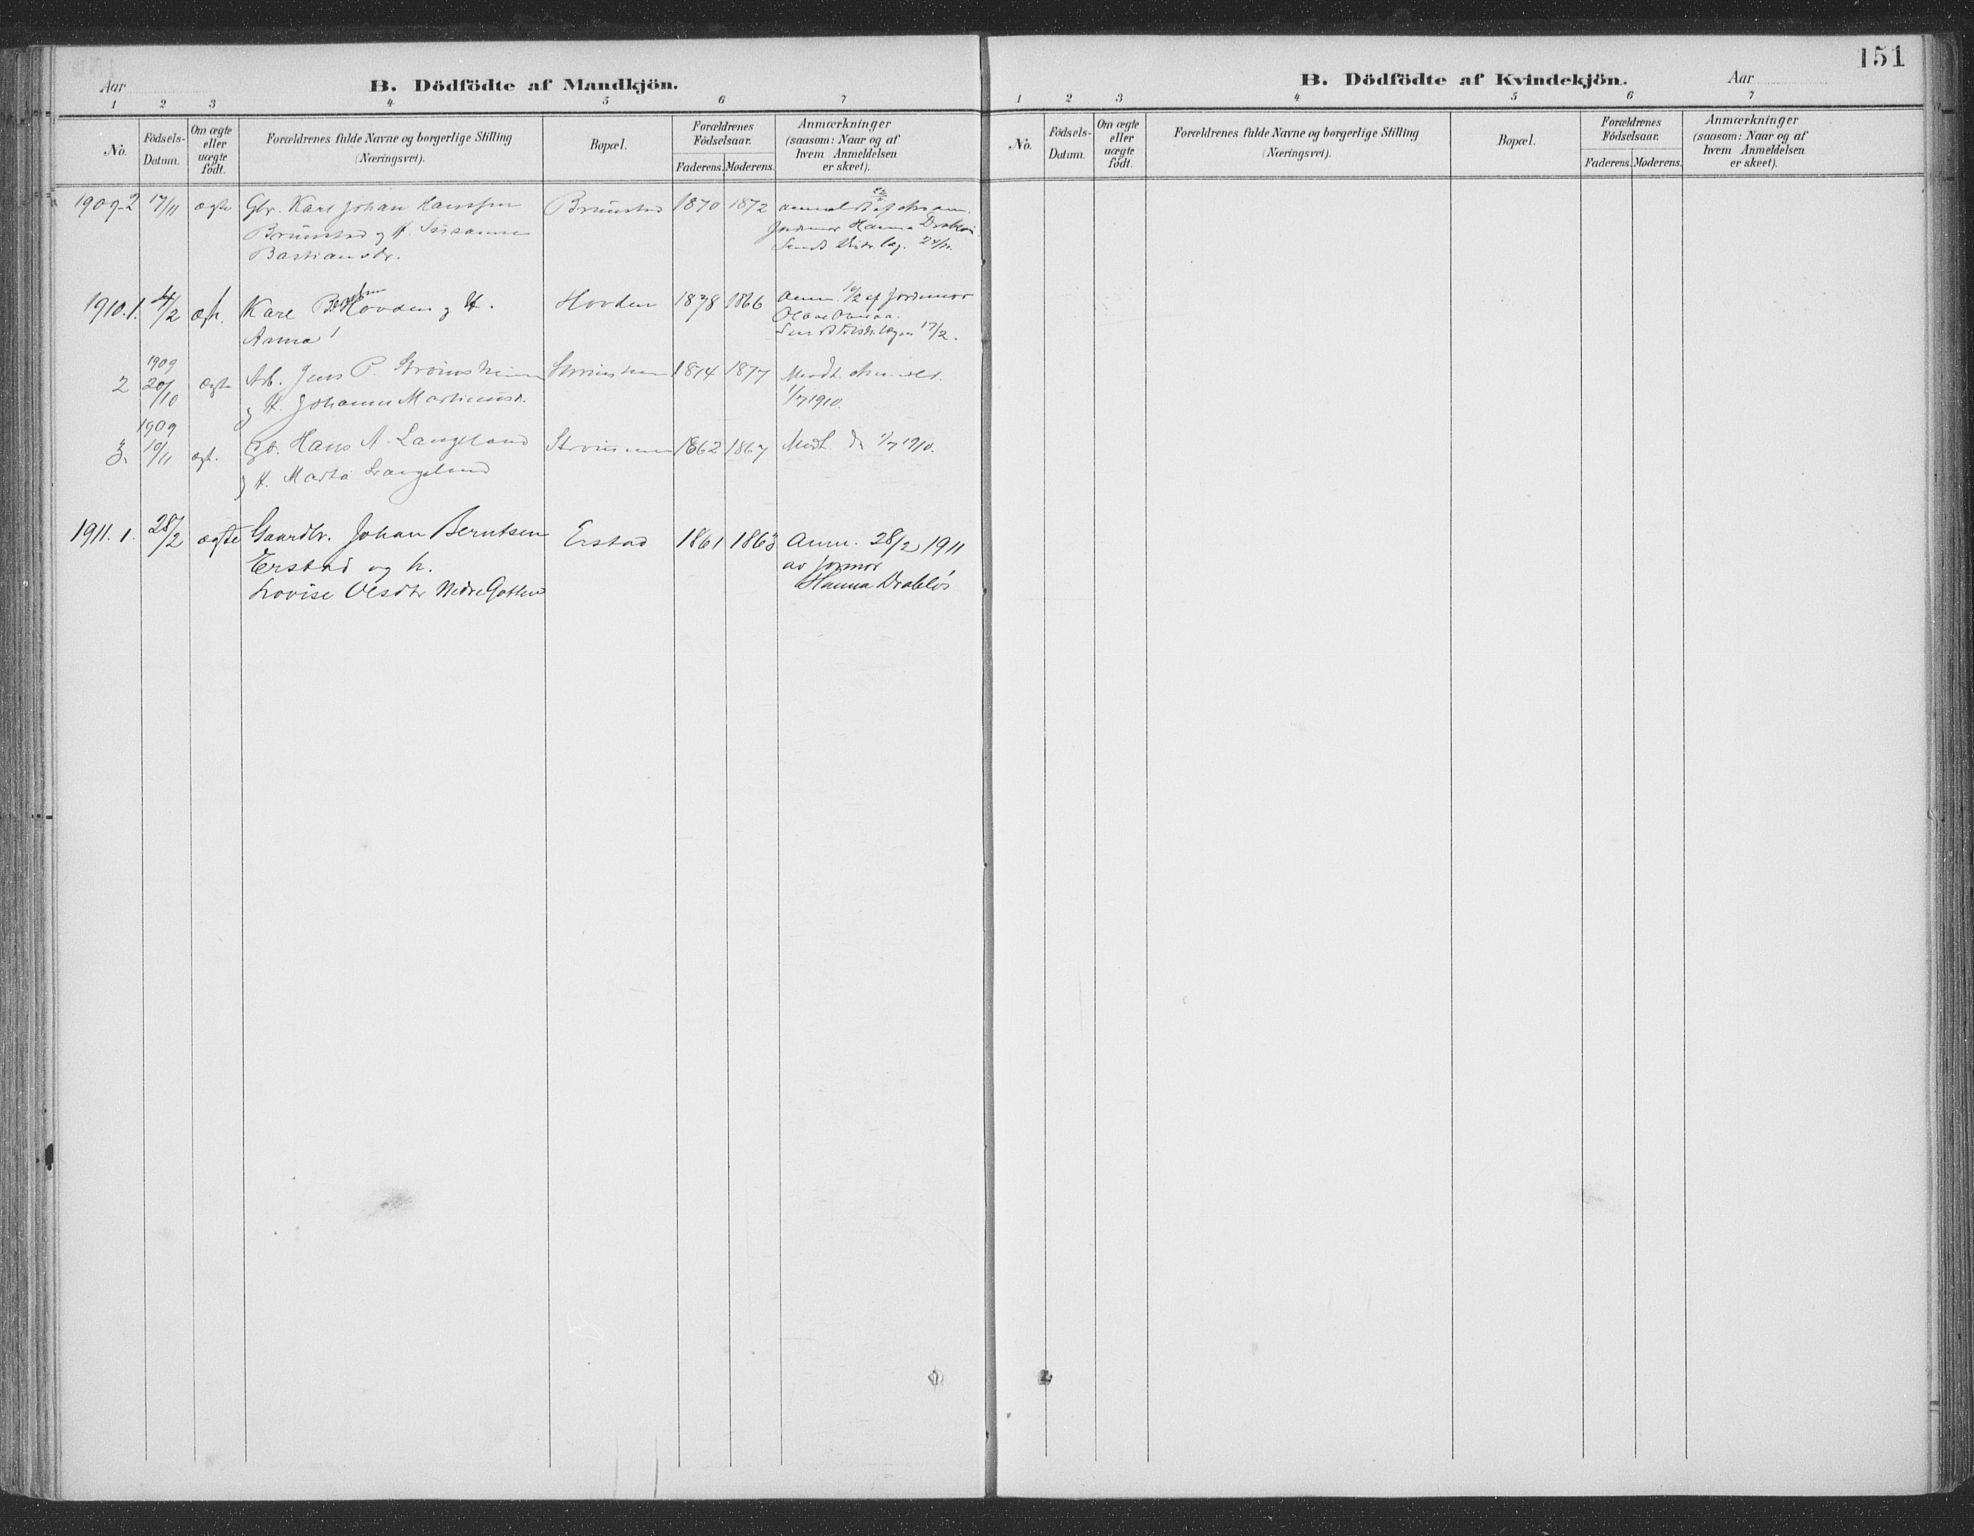 151
Aar
B. Dödfödte af Mandkjön.
1 2 3 4 5 6 7
No.
Födsels-
Datum.
Om ægte
eller
uægte
födt.
Forældrenes fulde Navne og borgerlige Stilling
(Næringsvei).
Bopæl.
Forældrenes
Födselsaar.
Faderens. Moderens.
Anmærkninger
(saasom: Naar og af
hvem Anmeldelsen
er skeet).
1909-2 17/11 ægte Gbr. Karl Johan Hanssen Brunstad 1870 1872
Brunstad og H. Susanna
Bastiansdr.
Jordmor Hanna Drabløs.
24/11.
1910.1. 4/2 ægt. Karl Hovden og H. Hovden 1878 1866 Anm. 10/2 af Jordmor
Anna
17/2.
1909
2 20/10 ægte Arb. Jens P. Strømsheim Strømsheim 1874 1877
og H. Johanne Martinusd.
1/7 1910.
1909
3. 10/11 ægt. Gb. Hans A. Langeland 1862 1867 Medt. 1/7 1910.
og H. Marta Langeland
1911. 1. 28/2 ægte Gaardbr. Johan Berntsen Erstad 1861 1863 Anm. 28/2 1911
Erstad og h. av jormor
Lovise Olsdtr Nedre Gotten Hanna Drabløs
B. Dödfödte af Kvindekjön.
Aar
1 2 3 4 5 6 7
No.
Födsels-
Datum.
Om ægte
eller
uægte
födt.
Forældrenes fulde Navne og borgerlige Stilling
(Næringsvei).
Bopæl.
Forældrenes
Födselsaar.
Faderens. Moderens.
Anmærkninger
(saasom: Naar og af
hvem Anmeldelsen
er skeet).